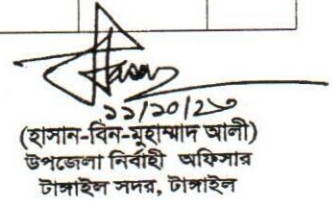 Hasan
১১/১০/২৩
(হাসান-বিন-মুহাম্মাদ আলী)
উপজেলা নির্বাহী অফিসার
টাঙ্গাইল সদর, টাঙ্গাইল